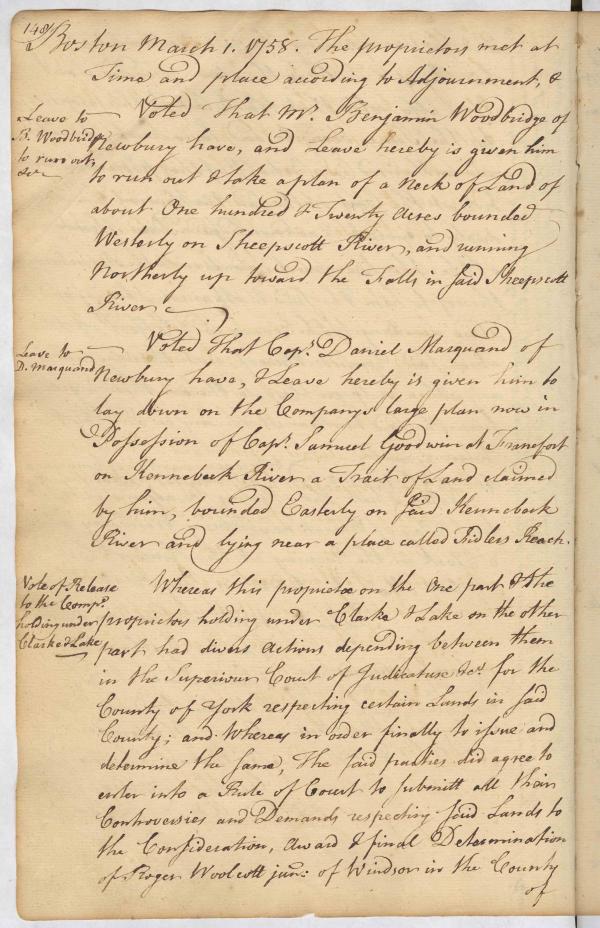 148
Boston March 1. 1758. The proprietors met at
Time and place according to Adjournment, &
Leave to
B. Woodbridge
to run out,
&c
Voted That Mr. Benjamin Woodbridge of
Newbury have, and Leave hereby is given him
to run out & take a plan of a Neck of Land of
about One hundred & Twenty Acres bounded
Westerly on Sheepscott River, and running
Northerly up toward the Falls in said Sheepscott
River
Leave to
D. Marquand
Voted That Capt. Daniel Marquand of
Newbury have, & Leave hereby is given him to
lay down on the Companys large plan now in
Possession of Capt. Samuel Goodwin at Francfort
on Kennebeck River a Trait of Land claimed
by him, bounded Easterly on said Kennebeck
River and lying near a place called Tidlers Reach.
Vote of Release
to the Compy.
holding under
Clarke & Lake
Whereas this proprietee on the One part & the
proprietors holding under Clarke & Lake on the other
part had divers Actions depending between them
in the Superiour Court of Judicature &c. for the
County of York respecting certain Lands in said
County; and Whereas in order finally to issue and
determine the same, The said parties did agree to
enter into a Rule of Court to submitt all their
Controversies and Demands respecting said Lands to
the Consideration, Award & final Determination
of Roger Woolcott junr: of Windsor in the County
of